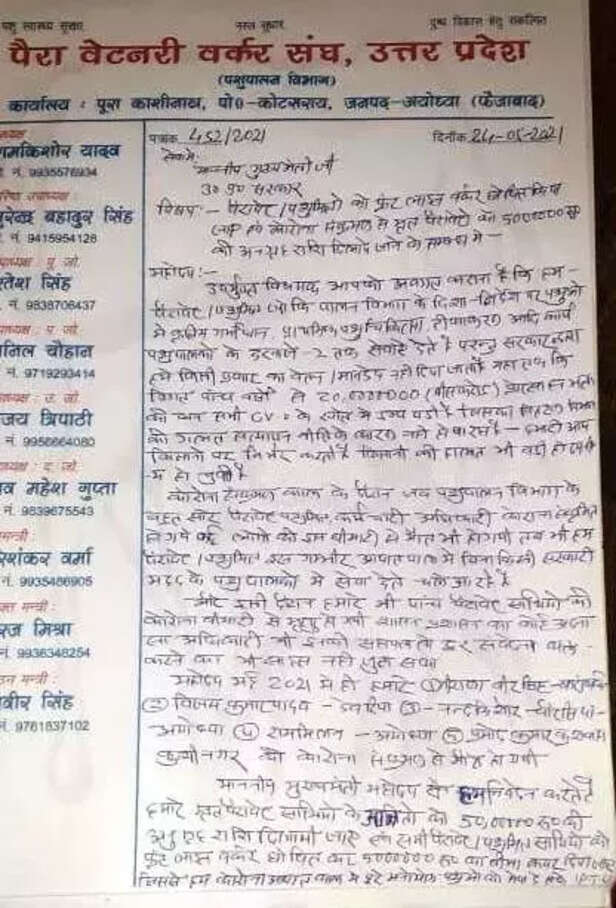 पशु स्वास्थ्य सुरक्षा
नस्ल सुधार
दुग्ध विकास हेतु संकल्पित
पैरा वेटनरी वर्कर संघ, उत्तर प्रदेश
(पशुपालन विभाग)
कार्यालय : पूरा काशीनाथ, पो0-कोटसराय, जनपद-अयोध्या (फैजाबाद)
ध्यक्ष
ामकिशोर यादव
नं. 9935576934
ुरेन्द्र बहादुर सिंह
नं. 9415954128
ितेश सिंह
नं. 9838706437
निल चौहान
नं. 9719293414
जय त्रिपाठी
नं. 9956664080
व महेश गुप्ता
नं. 9839675543
मन्त्री :
रशंकर वर्मा
नं. 9935486905
रज मिश्रा
नं. 9936348254
न मन्त्री :
वीर सिंह
नं. 9761837102
पत्रांक 452/2021
दिनांक 24-05-2021
सेवामें,
माननीय मुख्यमंत्री जी
उ० प्र० सरकार
विषय :- पैरावेट/पशुमित्रो को फ्रंट लाइन वर्कर घोषित किये
जाने एवं कोरोना संक्रमण से मृत पैरावेटो को 5000000 रू
की अनुग्रह राशि दिलाये जाने के सम्बन्ध में -
महोदय :-
उपर्युक्त विषयक आपको अवगत कराना है कि हम -
पैरावेट/पशुमित्र जो कि पालन विभाग के दिशा-निर्देश पर पशुओ
में कृत्रिम गर्भाधान, प्राथमिक पशु चिकित्सा, टीकाकरण आदि कार्य
पशुपालको के दरवाजे-2 तक सेवाये देते है परन्तु सरकार द्वारा
हमे किसी प्रकार का वेतन/मानदेय नही दिया जाता है यहां तक कि
विगत पांच वर्षो से 20,0000000 (बीस करोड)
किसानो पर निर्भर करते है किसानो की हालत भी बडी ही दयनीय
हो चुकी है
कोरोना संक्रमण काल के दौरान जब पशुपालन विभाग के
बहुत सारे पैरावेट पशुमित्र कर्मचारी अधिकारी कोरोना संक्रमित
हो गये कई लोगो की इस बीमारी से मौत भी हो गयी तब भी हम
पैरावेट/पशुमित्र इस गम्भीर आपात काल में बिना किसी सरकारी
मदद के पशु पालको में सेवा देते चले आ रहे है
और इसी दौरान हमारे भी पांच पैरावेट साथियो की
कोरोना बीमारी से मृत्यु हो गयी शासन प्रशासन का कोई अन्य
महोदय मई 2021 में ही हमारे ① वीर सिंह -
② विजय कुमार यादव - ③ नन्द किशोर -
अयोध्या ④ राममिलन - अयोध्या ⑤ प्रमोद कुमार कुशवाहा
कुशीनगर की कोरोना संक्रमण से मौत हो गयी
माननीय मुख्यमंत्री महोदय से हम निवेदन करते है
हमारे मृत पैरावेट साथियो के आश्रितो को 50,00000 रू की
अनुग्रह राशि दिलायी जाए एवं सभी पैरावेट/पशुमित्र साथियो को
फ्रंट लाइन वर्कर घोषित कर 5000000 रू का बीमा कवर दिया जाए